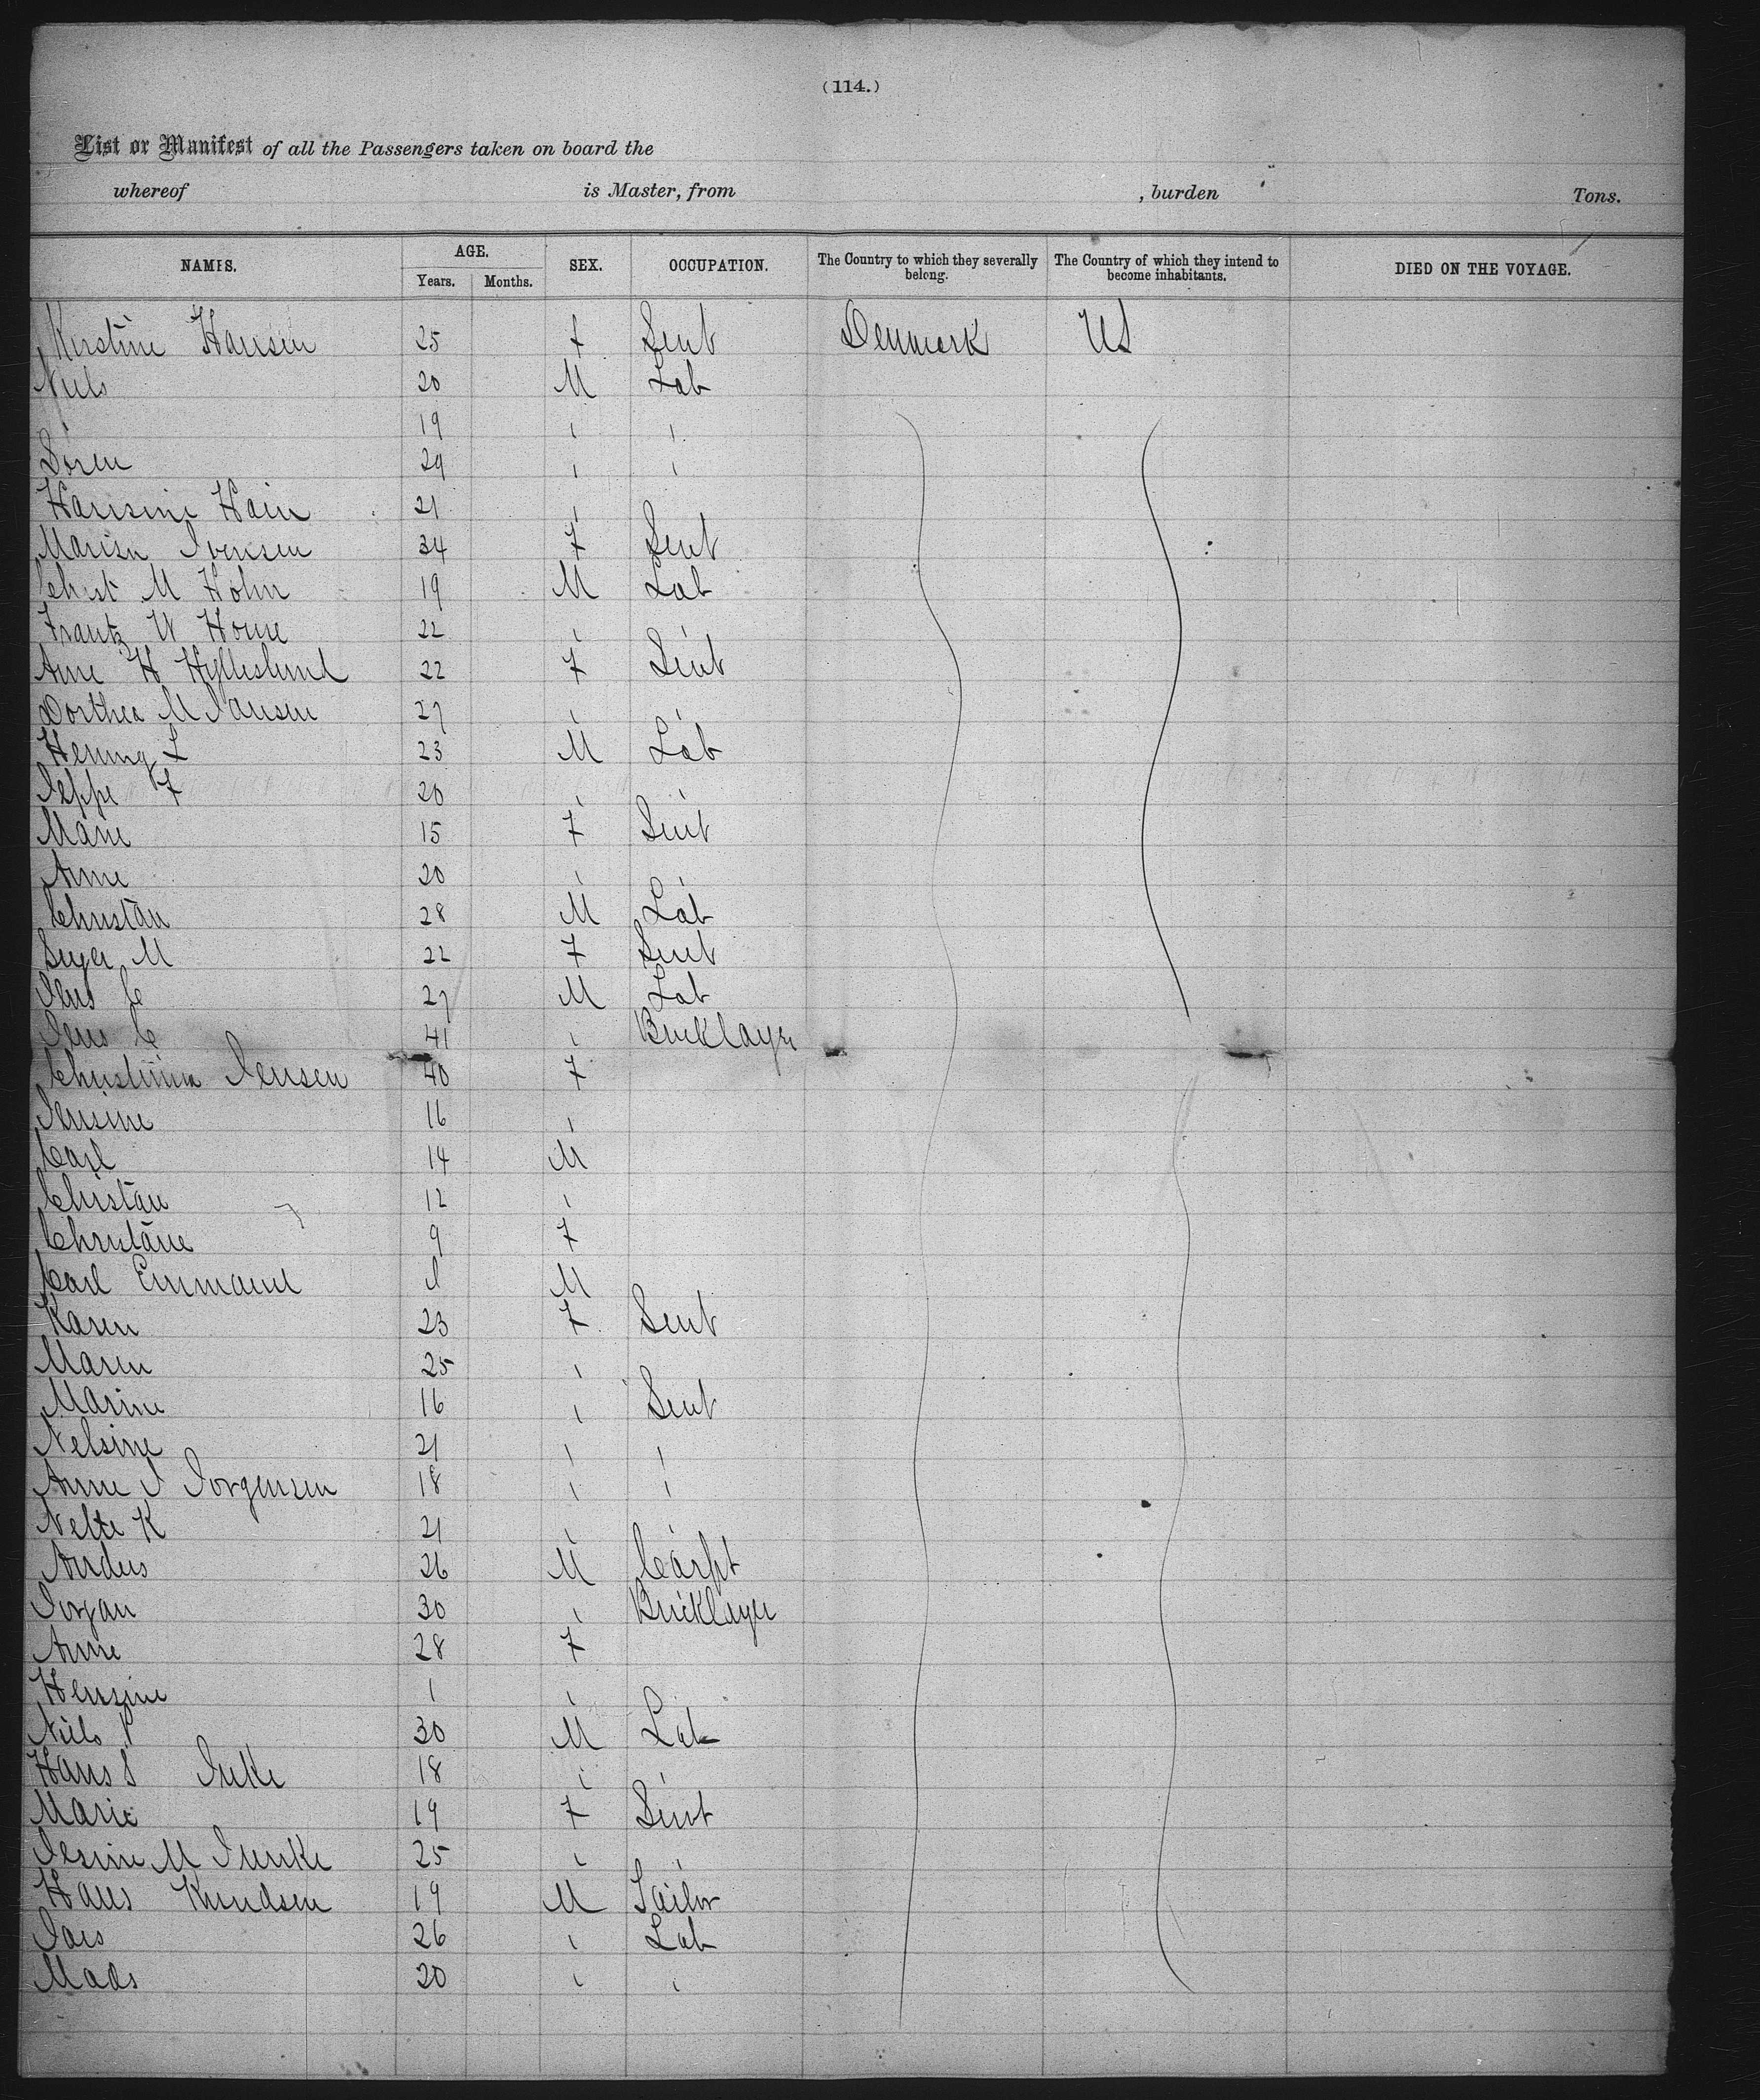 (114.)
List or Manifest of all the Passengers taken on board the
whereof is Master, from , burden Tons.
NAMES. AGE. SEX. OCCUPATION. The Country to which they severally belong. The Country of which they intend to become inhabitants. DIED ON THE VOYAGE.
Years. Months.
Kirstine Hansen 25 F Sent Denmark US
Niels 20 M Lab
" 19 " "
Sören 29 " "
Hansine Hain 21 "
Iversen 34 F Sent
Christ M Holm 19 M Lab
Frantz W Horne 22 " "
Ane H Hylleslund 22 F Sent
Dorthea M Jansen 27 " "
Hening L 23 M Lab
Jeppe F 20 " "
Mane 15 F Sent
Anne 20 " "
Christan 28 M Lab
M 22 F Sent
Jens C 27 M Lab
Jens C 41 " Bricklayer
Christinia Jensen 40 F
Jensine 16 "
Carl 14 M
Christan 12 "
Christane 9 F
Carl Emmanul M
Karen 23 F Sent
Maren 25 "
Marine 16 " Sent
Nelsine 21 " "
Anne J Jorgensen 18 " "
Nelte K 21 " "
Andus 26 M Carpt
Jorgan 30 " Bricklayer
Anne 28 F
Hensine 1 "
Niels P 30 M Lab
Hans S Juke 18 " "
Marie 19 F Sent
Jesine M Junke 25 " "
Hans Knudsen 19 M Tailor
Lars 26 " Lab
Mads 20 " "